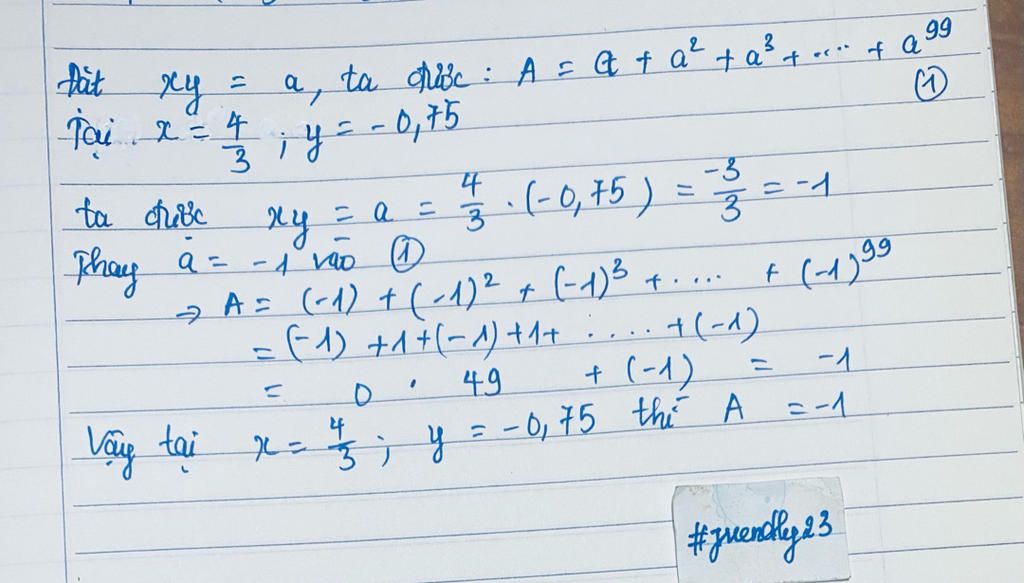 Đặt xy = a, ta được : A = a + a² + a³ + .... + a⁹⁹ ①
Tại x = 4/3 ; y = -0,75
ta được xy = a = 4/3 . (-0,75) = -3/3 = -1
Thay a = -1 vào ①
⇒ A = (-1) + (-1)² + (-1)³ + .... + (-1)⁹⁹
= (-1) +1+(-1)+1+ ..... +(-1)
= 0 . 49 + (-1) = -1
Vậy tại x = 4/3 ; y = -0,75 thì A = -1